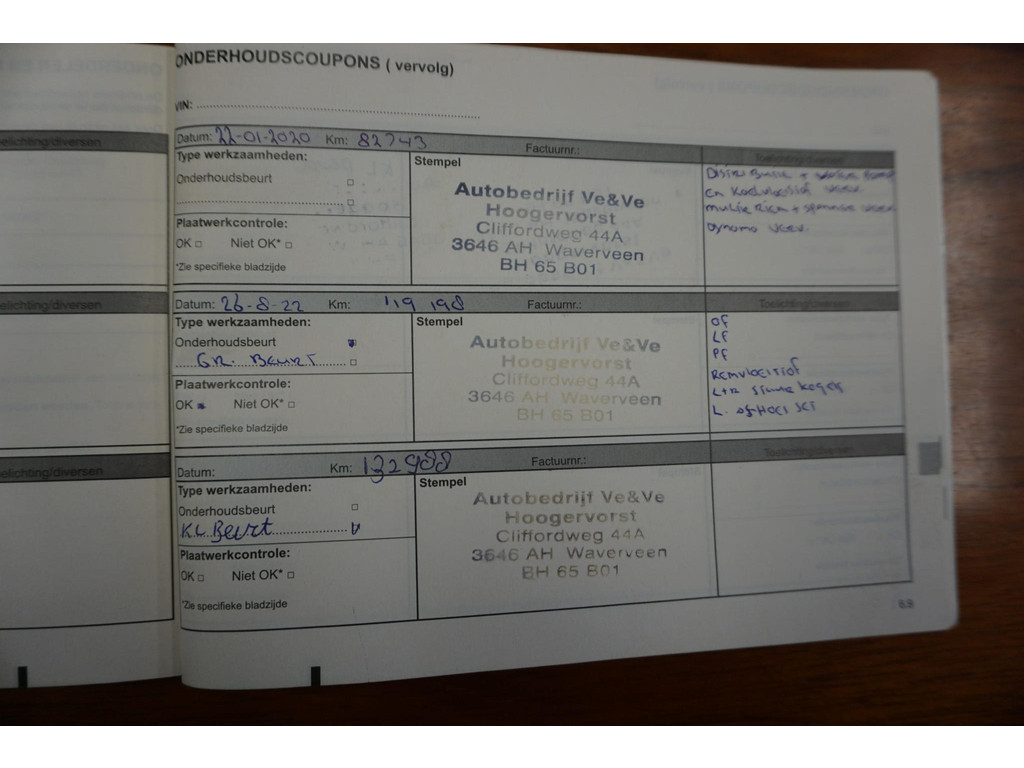 ONDERHOUDSCOUPONS ( vervolg)
VIN:
elichting/diversen
Datum: 22-01-2020 Km: 82743 Factuurnr.: Toelichting/diversen
Type werkzaamheden:
Onderhoudsbeurt
Plaatwerkcontrole:
OK Niet OK*
*Zie specifieke bladzijde
Stempel
Autobedrijf Ve&Ve
Hoogervorst
Cliffordweg 44A
3646 AH Waverveen
BH 65 B01
en Koelvloeistof verv.
Dynamo verv.
elichting/diversen
Datum: 26-8-22 Km: 119 198 Factuurnr.: Toelichting/diversen
Type werkzaamheden:
Onderhoudsbeurt
GR. Beurt
Plaatwerkcontrole:
OK Niet OK*
*Zie specifieke bladzijde
Stempel
Autobedrijf Ve&Ve
Hoogervorst
Cliffordweg 44A
3646 AH Waverveen
BH 65 B01
OF
LF
PF
Remvloeistof
L+R
L.
elichting/diversen
Datum: Km: 132988 Factuurnr.: Toelichting/diversen
Type werkzaamheden:
Onderhoudsbeurt
KL Beurt
Plaatwerkcontrole:
OK Niet OK*
*Zie specifieke bladzijde
Stempel
Autobedrijf Ve&Ve
Hoogervorst
Cliffordweg 44A
3646 AH Waverveen
BH 65 B01
6.9